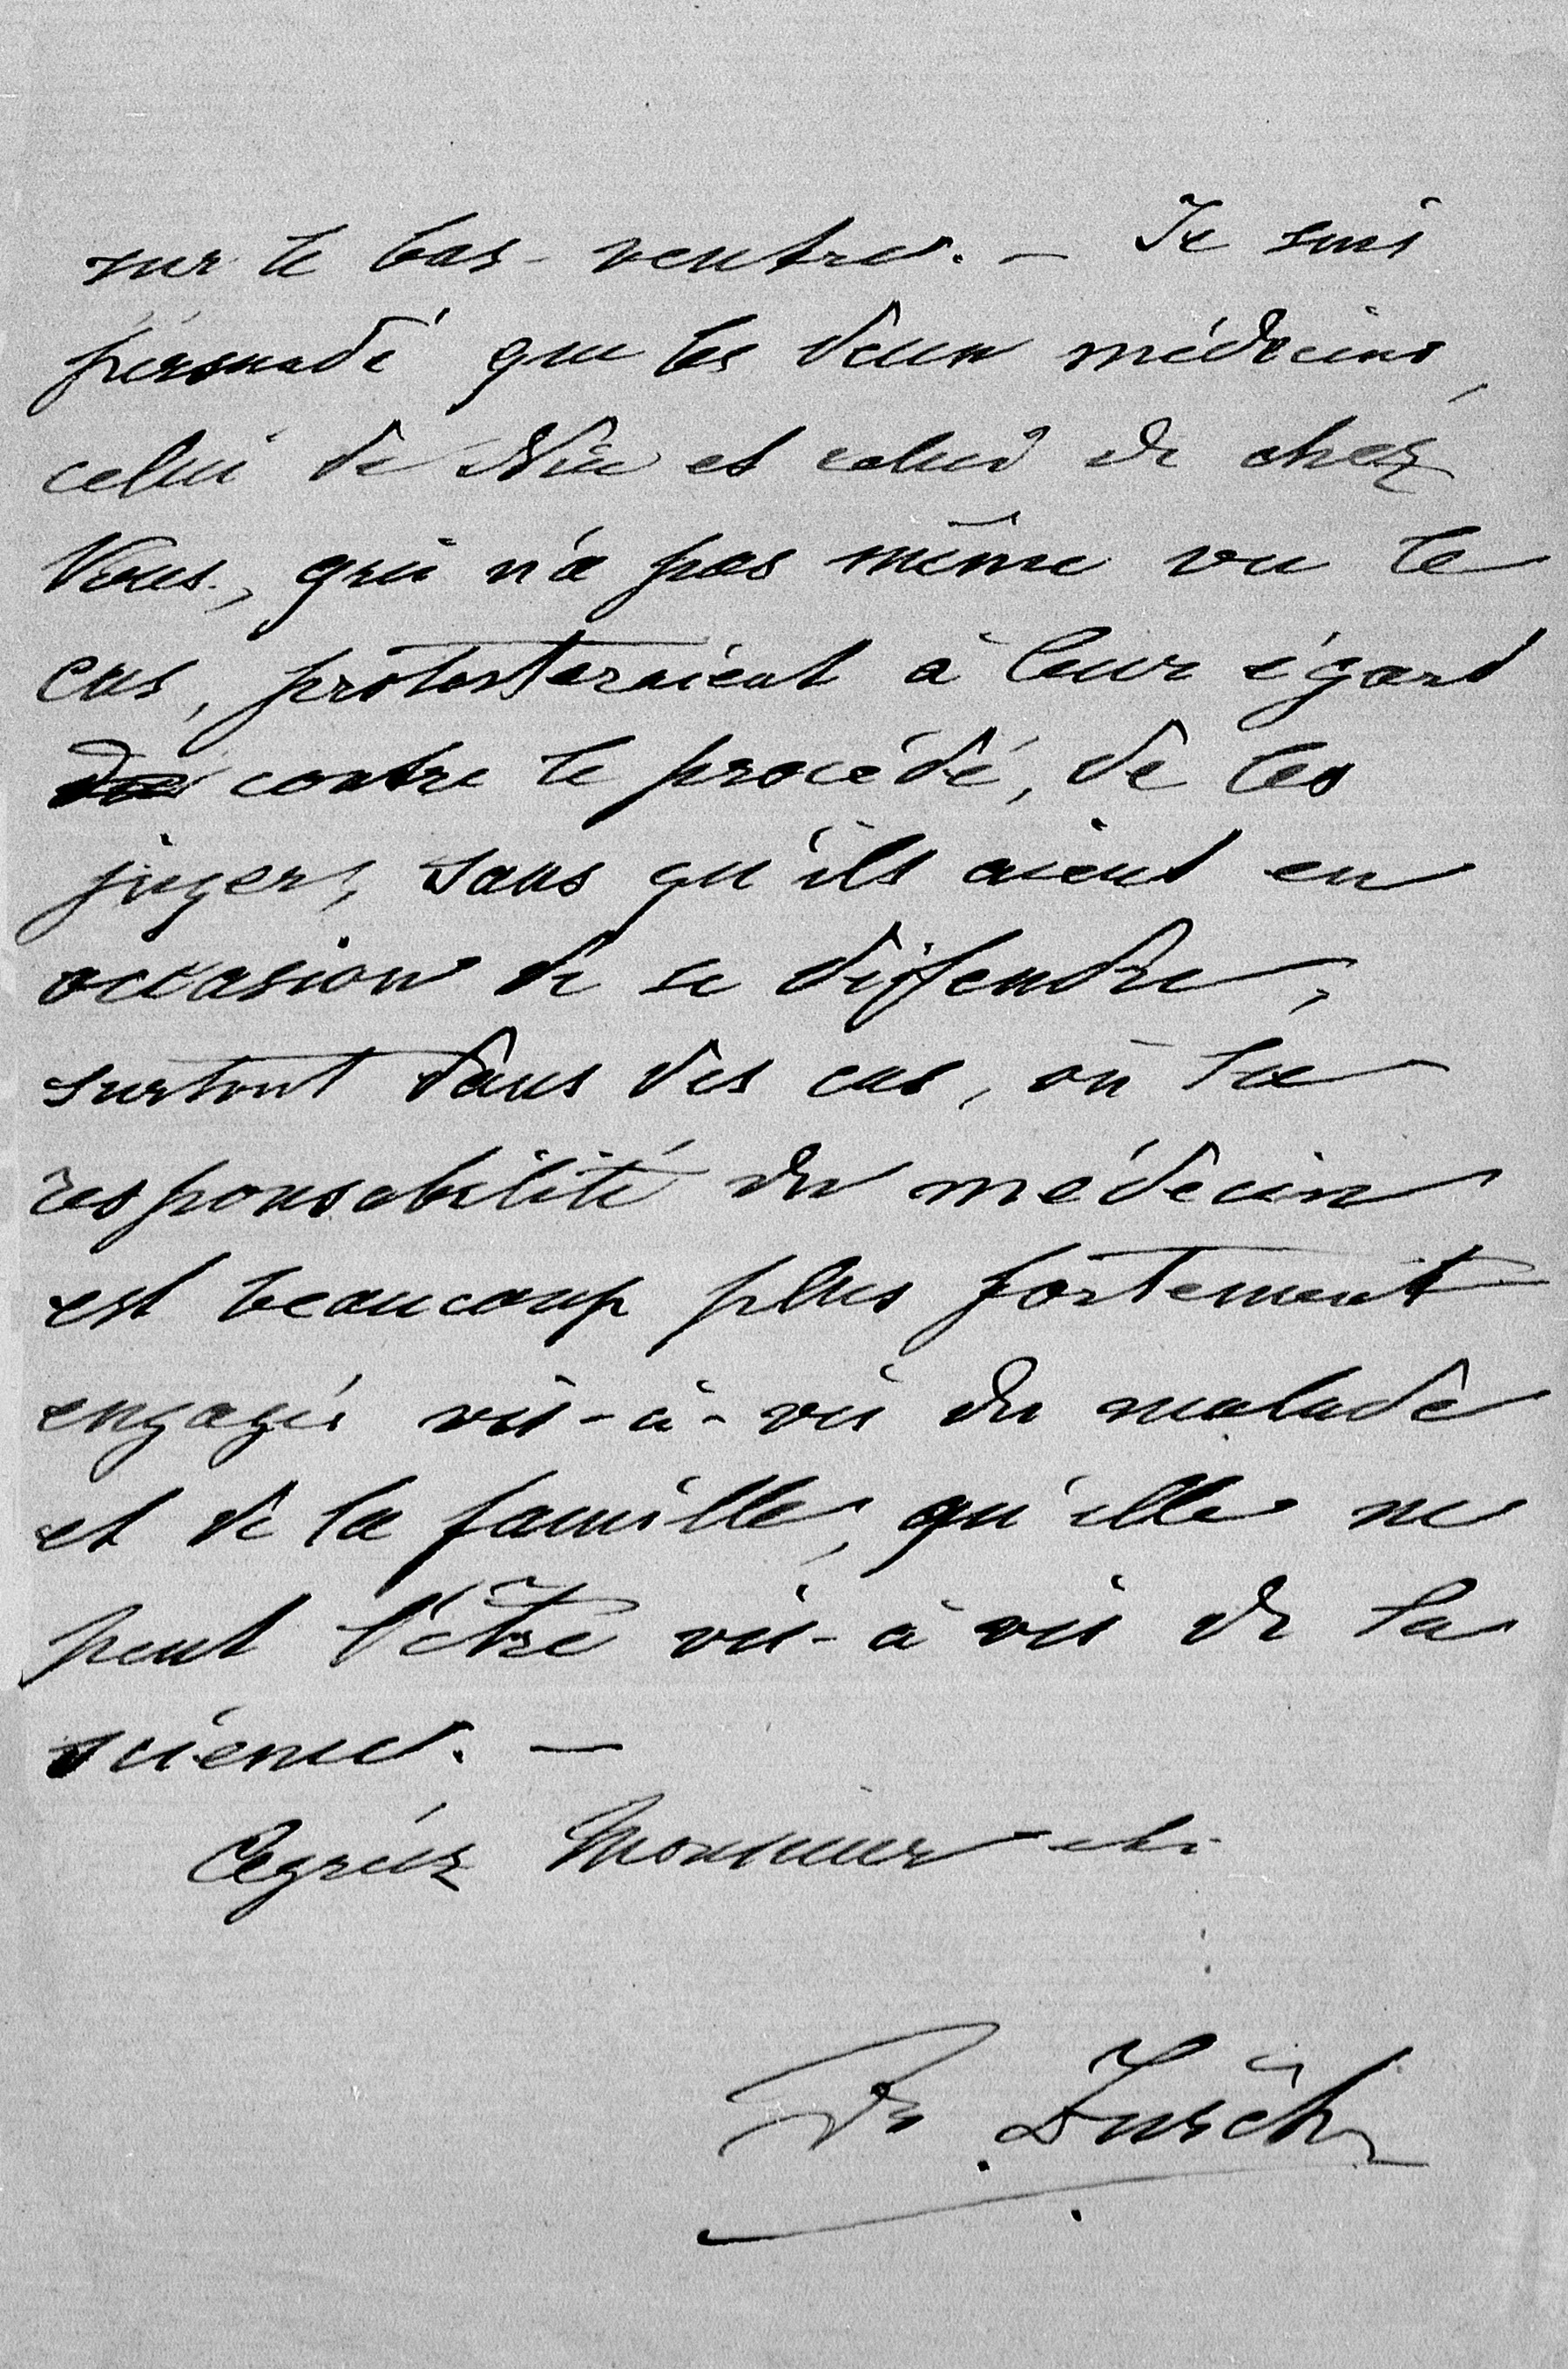 sur le bas-ventre. — Je suis
persuadé que les deux médecins,
celui de Nice et celui de chez
Vous, qui n'a pas même vu le
cas, protesteraient à leur égard
contre le procédé, de les
juger, sans qu'ils aient eu
occasion de se diffendre,
surtout dans des cas, où la
responsabilité du médecin
est beaucoup plus fortement
engagée vis-à-vis du malade
et de la famille, qu'elle ne
peut l'être vis-à vis de la
science. —
Agréez Monsieur etc.
Dr Zürcher